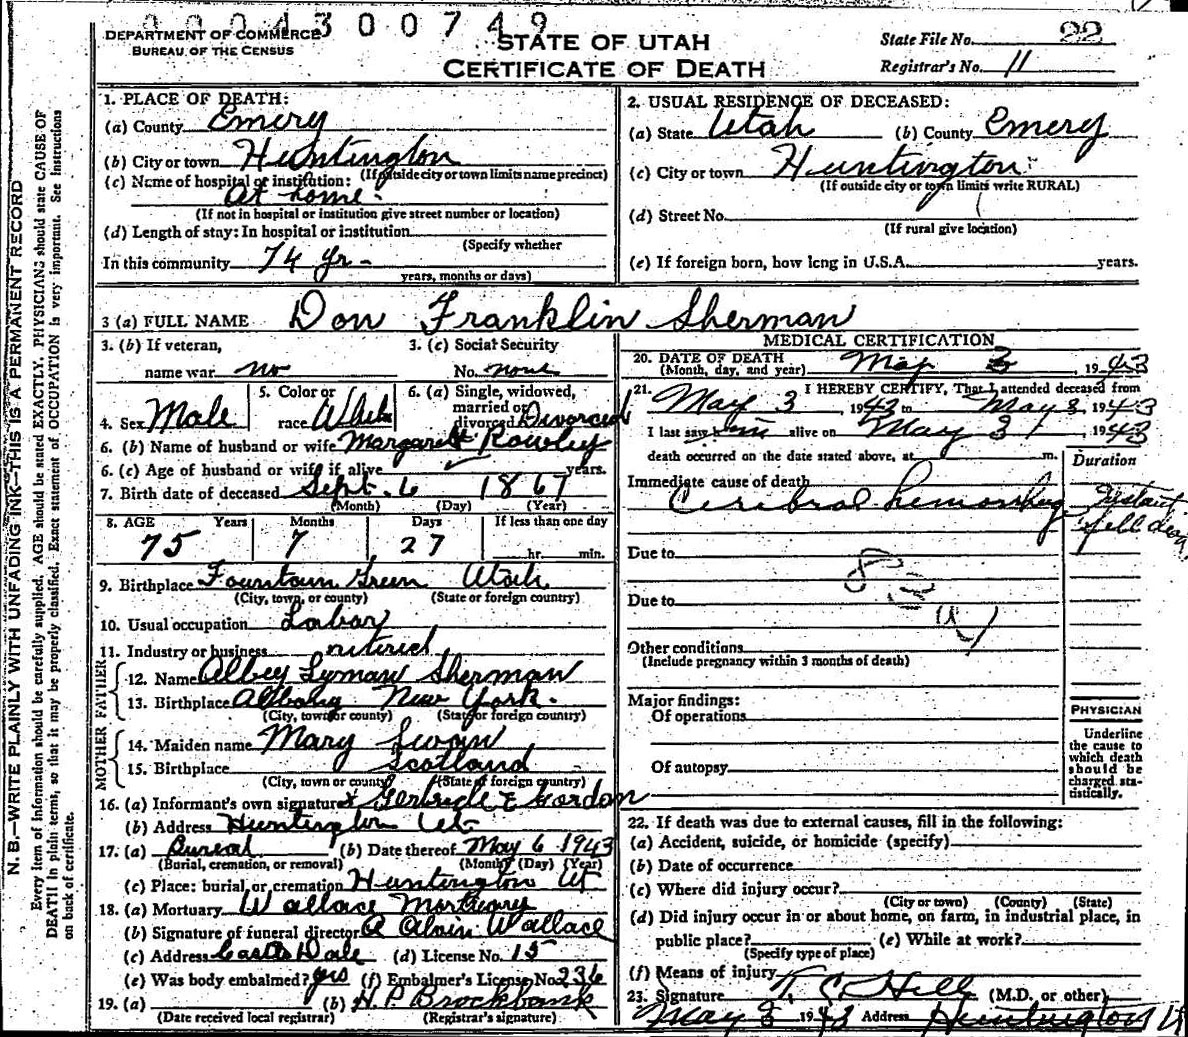 0004300749
DEPARTMENT OF COMMERCE
BUREAU OF THE CENSUS
STATE OF UTAH
CERTIFICATE OF DEATH
State File No. 22
Registrar's No. 11
N. B.—WRITE PLAINLY WITH UNFADING INK—THIS IS A PERMANENT RECORD
Every item of information should be carefully supplied. AGE should be stated EXACTLY. PHYSICIANS should state CAUSE OF
DEATH in plain terms, so that it may be properly classified. Exact statement of OCCUPATION is very important. See instructions
on back of certificate.
1. PLACE OF DEATH:
(a) County Emery
(b) City or town Huntington
(If outside city or town limits name precinct)
(c) Name of hospital or institution:
At home.
(If not in hospital or institution give street number or location)
(d) Length of stay: In hospital or institution
(Specify whether
In this community 74 yr.
years, months or days)
2. USUAL RESIDENCE OF DECEASED:
(a) State Utah (b) County Emery
(c) City or town Huntington
(If outside city or town limits write RURAL)
(d) Street No.
(If rural give location)
(e) If foreign born, how long in U.S.A. years.
3 (a) FULL NAME Don Franklin Sherman
3. (b) If veteran, name war no
3. (c) Social Security No. none
4. Sex Male
5. Color or race White
6. (a) Single, widowed, married or divorced Divorced
6. (b) Name of husband or wife Margarett Rowley
6. (c) Age of husband or wife if alive years.
7. Birth date of deceased Sept. 6 1867
(Month) (Day) (Year)
8. AGE Years Months Days If less than one day
75 7 27 hr. min.
9. Birthplace Fountain Green Utah
(City, town, or county) (State or foreign country)
10. Usual occupation Labor
11. Industry or business retired
FATHER
12. Name Albey Lyman Sherman
13. Birthplace Albany New York.
(City, town or county) (State or foreign country)
MOTHER
14. Maiden name Mary Swan
15. Birthplace Scotland
(City, town or county) (State or foreign country)
16. (a) Informant's own signature x Gertrude E Gordon
(b) Address Huntington Ut
17. (a) Bureal (b) Date thereof May 6 1943
(Burial, cremation, or removal) (Month) (Day) (Year)
(c) Place: burial or cremation Huntington Ut
18. (a) Mortuary Wallace Mortuary
(b) Signature of funeral director A Alvin Wallace
(c) Address Castle Dale (d) License No. 15
(e) Was body embalmed? yes (f) Embalmer's License No. 236
19. (a) (b) H. P. Brockbank
(Date received local registrar) (Registrar's signature)
MEDICAL CERTIFICATION
20. DATE OF DEATH May 3, 1943
(Month, day, and year)
21. I HEREBY CERTIFY, That I attended deceased from
May 3 1943 to May 3 1943
I last saw him alive on May 3 1943
death occurred on the date stated above, at m.
Duration
Immediate cause of death
Cerebral hemorrhage
Instant
fell dead
Due to
83
Due to
(a)
Other conditions
(Include pregnancy within 3 months of death)
Major findings:
Of operations
Of autopsy
PHYSICIAN
Underline
the cause to
which death
should be
charged sta-
tistically.
22. If death was due to external causes, fill in the following:
(a) Accident, suicide, or homicide (specify)
(b) Date of occurrence
(c) Where did injury occur?
(City or town) (County) (State)
(d) Did injury occur in or about home, on farm, in industrial place, in
public place? (e) While at work?
(Specify type of place)
(f) Means of injury
23. Signature C Hill (M.D. or other)
May 3 1943 Address Huntington Ut